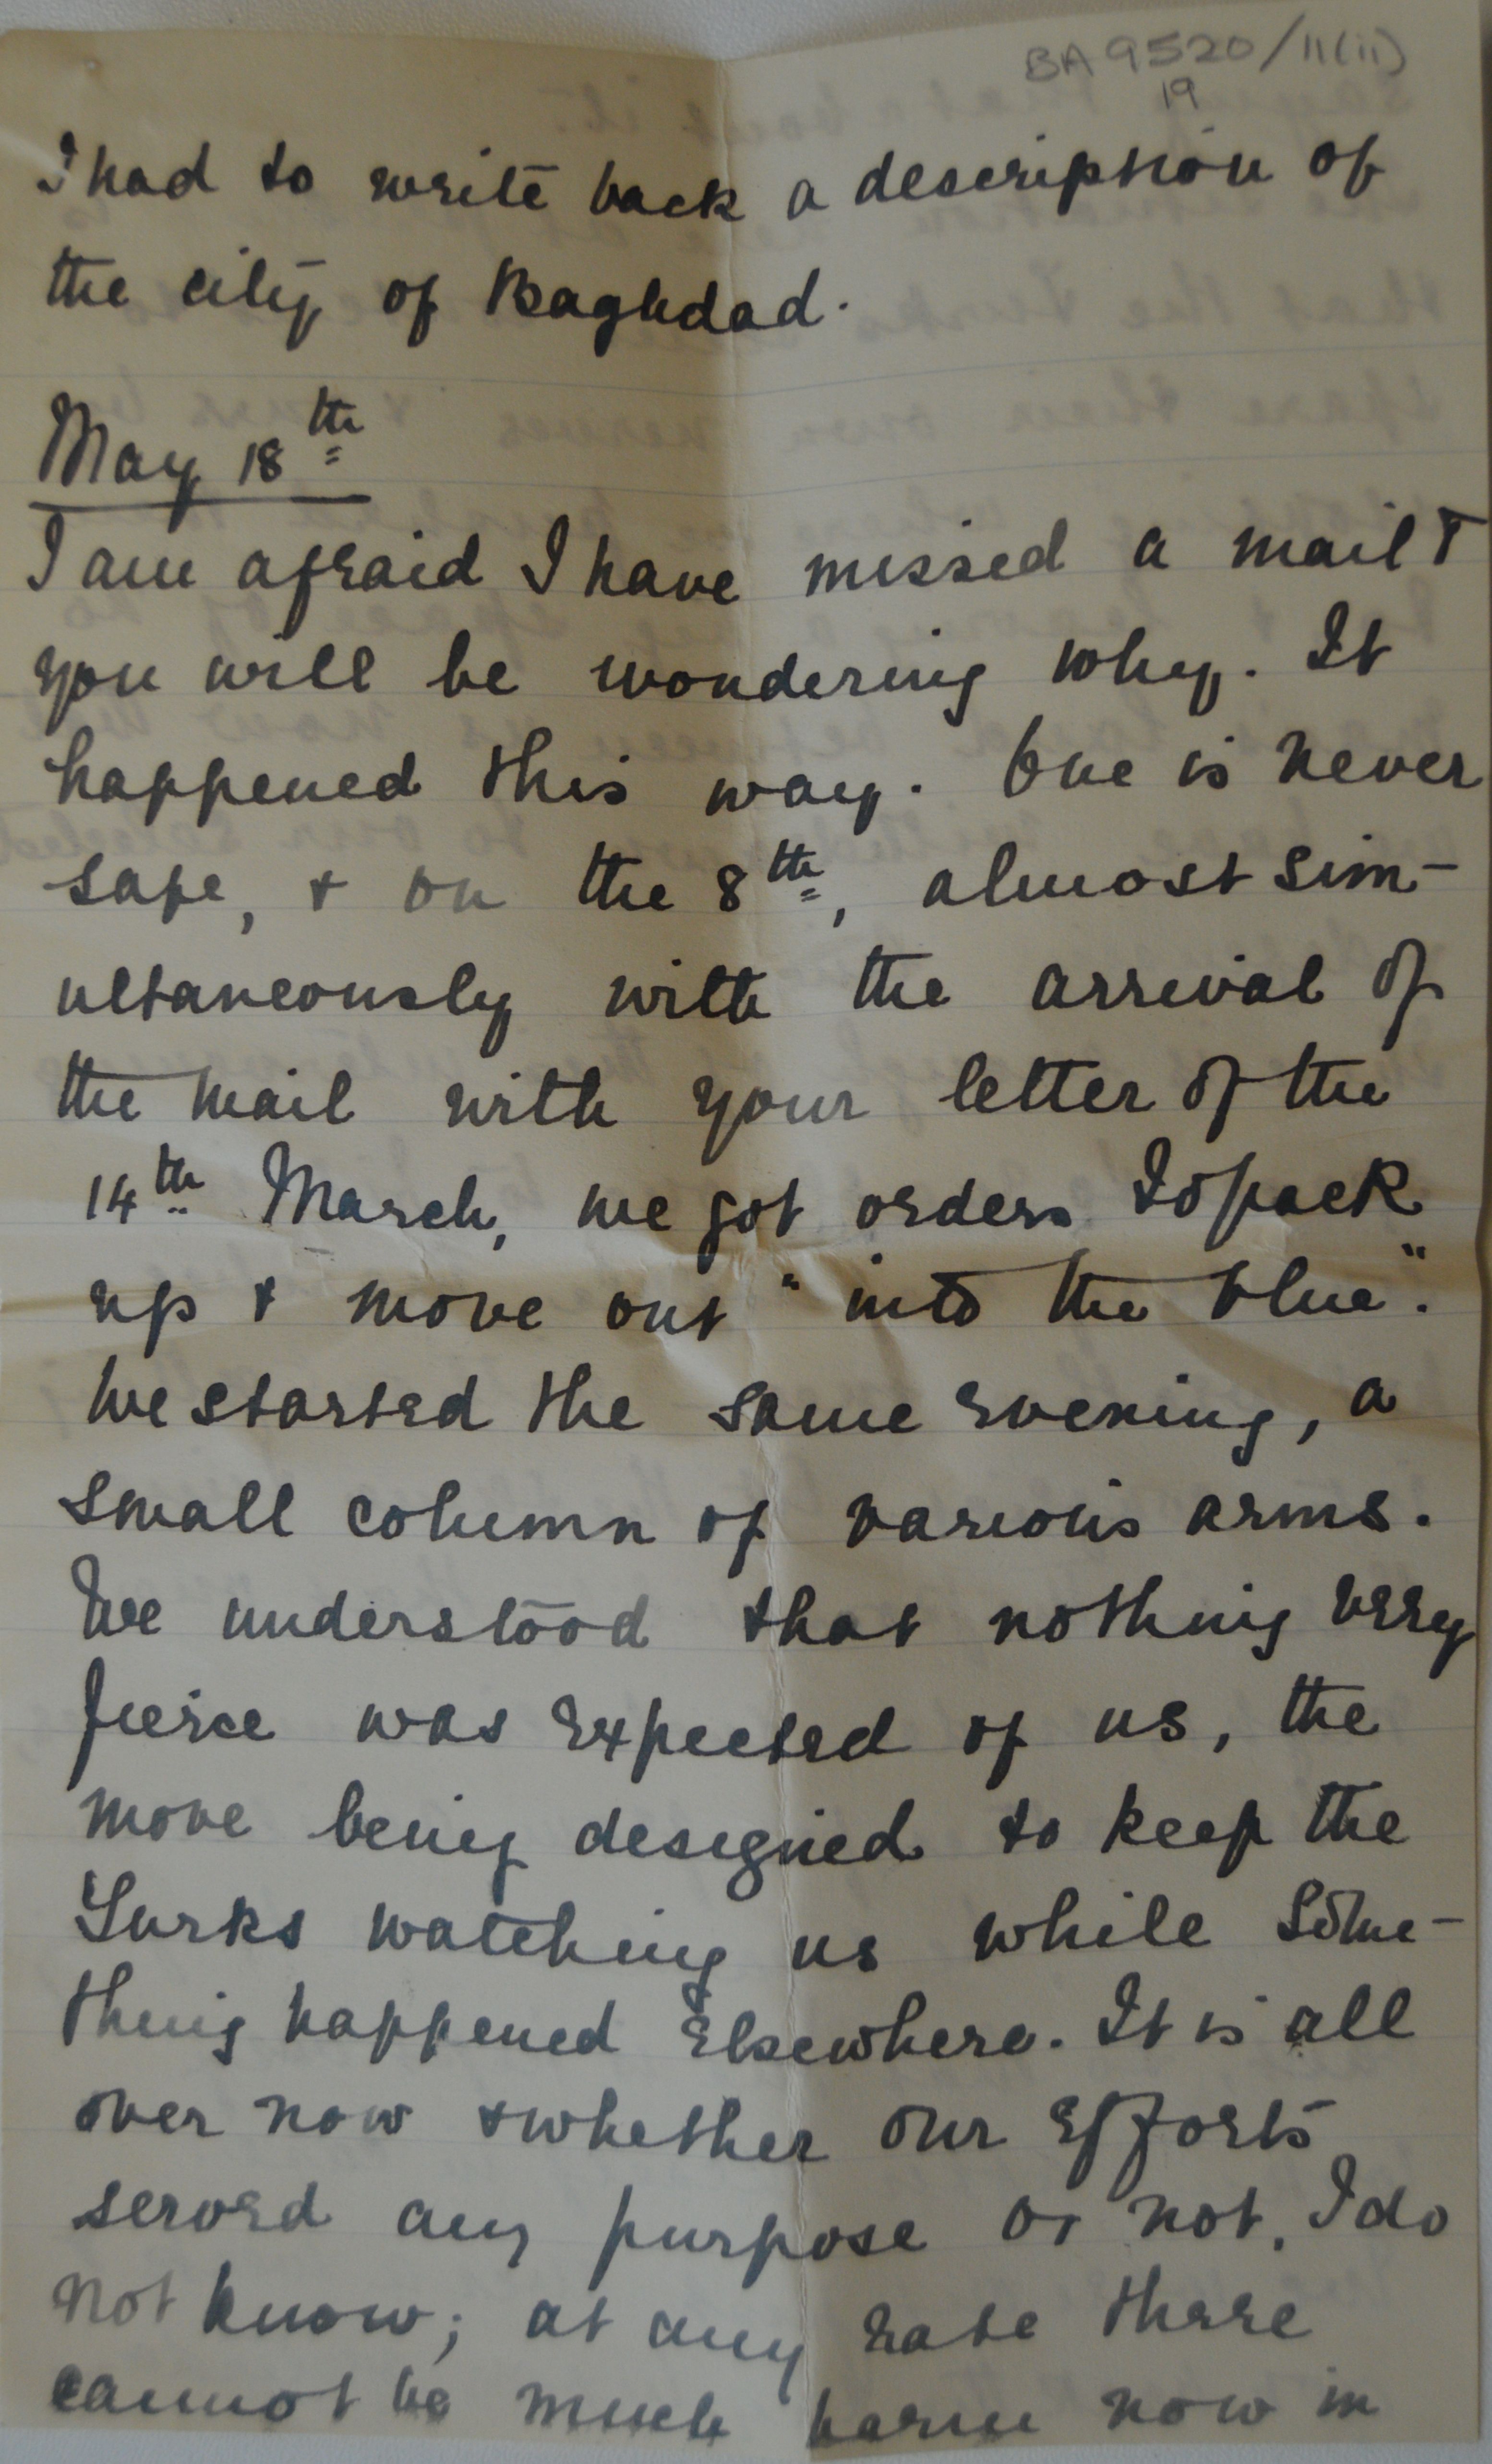 BA 9520/11(ii)
19
I had to write back a description of
the city of Baghdad.
May 18th
I am afraid I have missed a mail &
you will be wondering why. It
happened this way. One is never
safe, & on the 8th, almost sim-
ultaneously with the arrival of
the mail with your letter of the
14th March, we got orders to pack
up & move out "into the blue".
We started the same evening, a
small column of various arms.
We understood that nothing very
fierce was expected of us, the
move being designed to keep the
Turks watching us while some-
thing happened elsewhere. It is all
over now & whether our efforts
served any purpose or not, I do
not know; at any rate there
cannot be much harm now in